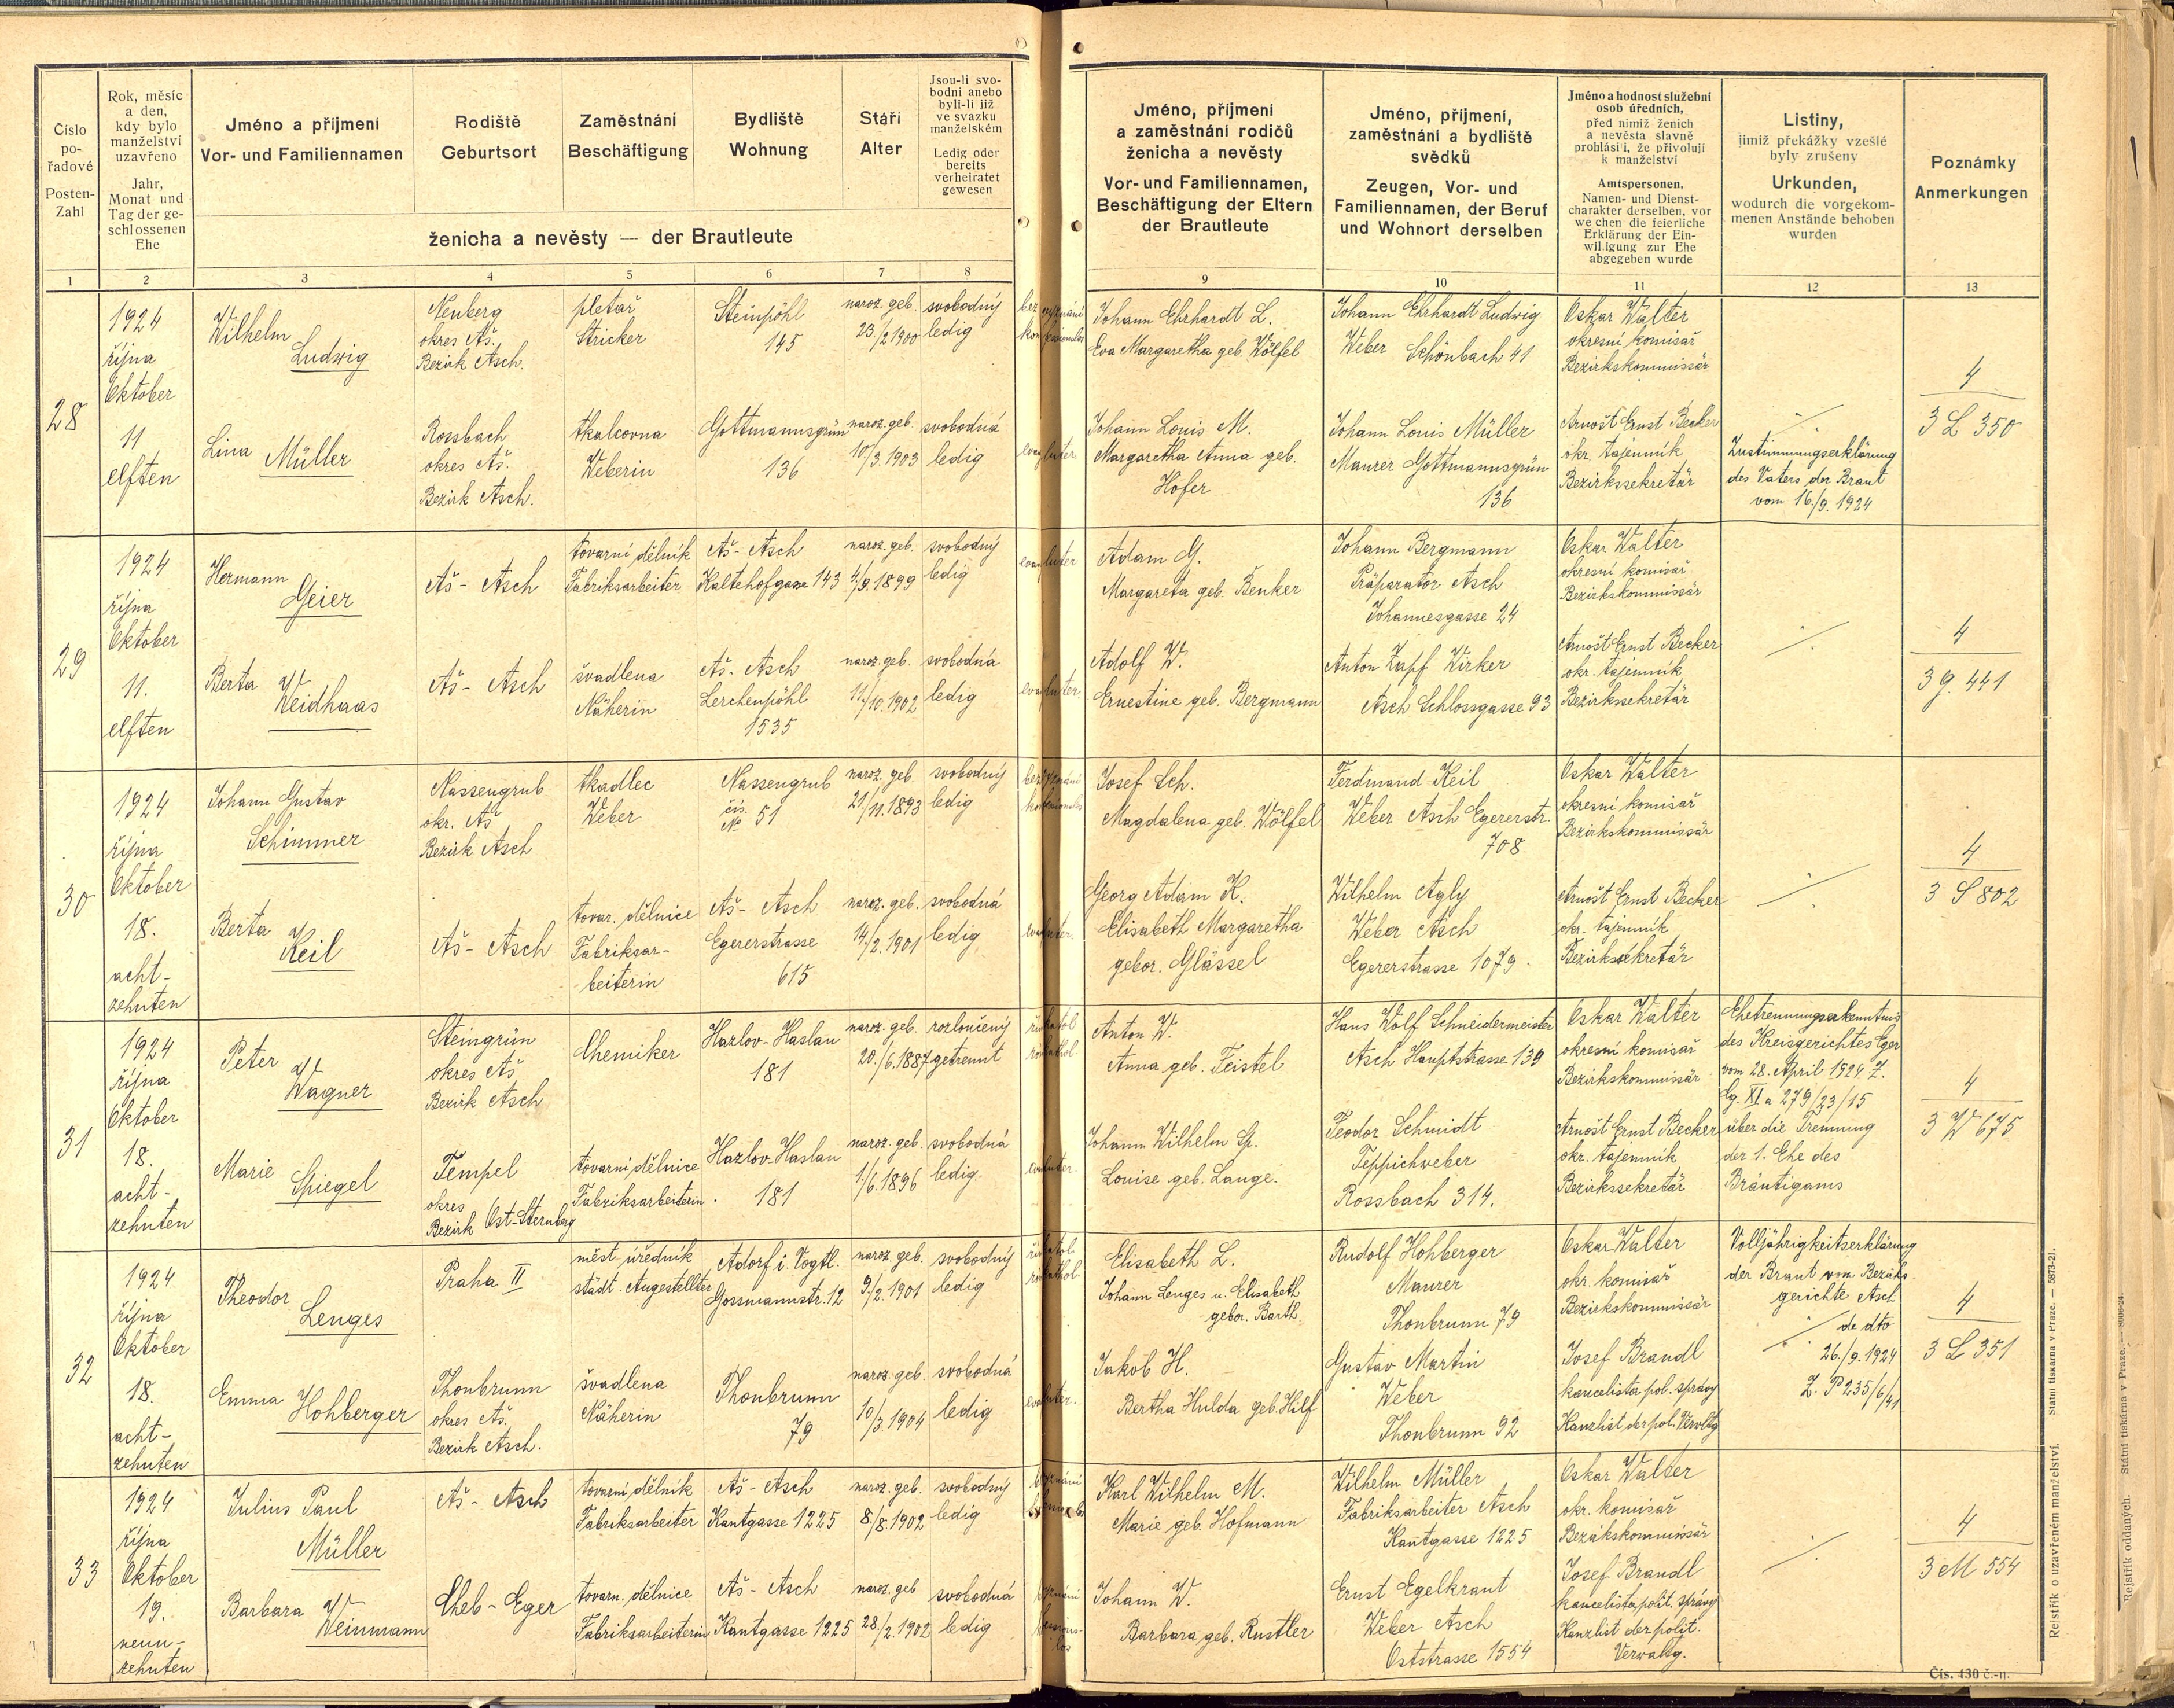 Číslo
po-
řadové
Posten-
Zahl
Rok, měsíc
a den,
kdy bylo
manželství
uzavřeno
Jahr,
Monat und
Tag der ge-
schlossenen
Ehe
Jméno a příjmení
Vor- und Familiennamen
Rodiště
Geburtsort
Zaměstnání
Beschäftigung
Bydliště
Wohnung
Stáří
Alter
Jsou-li svo-
bodni anebo
byli-li již
ve svazku
manželském
Ledig oder
bereits
verheiratet
gewesen
ženicha a nevěsty — der Brautleute
Jméno, příjmení
a zaměstnání rodičů
ženicha a nevěsty
Vor- und Familiennamen,
Beschäftigung der Eltern
der Brautleute
Jméno, příjmení,
zaměstnání a bydliště
svědků
Zeugen, Vor- und
Familiennamen, der Beruf
und Wohnort derselben
Jméno a hodnost služební
osob úředních,
před nimiž ženich
a nevěsta slavně
prohlásili, že přivolují
k manželství
Amtspersonen,
Namen- und Dienst-
charakter derselben, vor
we chen die feierliche
Erklärung der Ein-
wil.igung zur Ehe
abgegeben wurde
Listiny,
jimiž překážky vzešlé
byly zrušeny
Urkunden,
wodurch die vorgekom-
menen Anstände behoben
wurden
Poznámky
Anmerkungen
1 2 3 4 5 6 7 8 9 10 11 12 13
28
1924
října
Oktober
11
elften
Wilhelm
Ludwig
Neuberg
okres Aš.
Bezirk Asch.
pletař
Stricker
Steinpöhl
145
naroz. geb.
23/2 1900
svobodný
ledig
Johann Ehrhardt L.
Eva Margaretha geb. Wölfel
Johann Ehrhardt Ludwig
Weber Schönbach 41
Oskar Walter
okresní komisař
Bezirkskommissär
4
3 L 350
Lina
Müller
Rossbach
okres Aš.
Bezirk Asch.
tkalcovna
Weberin
Gottmannsgrün
136
naroz. geb.
10/3. 1903
svobodná
ledig
evang luter.
Johann Louis M.
Margaretha Anna geb.
Hofer
Johann Louis Müller
Maurer Gottmannsgrün
136
Arnošt Ernst Becker
okr. tajemník
Bezirkssekretär
Zustimmungserklärung
des Vaters der Braut
vom 16./9. 1924
29
1924
října
Oktober
11.
elften
Hermann
Geier
Aš - Asch
tovarní dělník
Fabriksarbeiter
Aš - Asch
Kaltehofgasse 143
naroz. geb.
4./9. 1899
svobodný
ledig
evang luter
Adam G.
Margareta geb. Benker
Johann Bergmann
Präparator Asch
Johannesgasse 24
Oskar Walter
okresní komisař
Bezirkskommissär
4
3 G. 441
Berta
Weidhaas
Aš - Asch
švadlena
Näherin
Aš - Asch
Lerchenpöhl
1535
naroz. geb.
11./10. 1902
svobodná
ledig
evang luter.
Adolf W.
Ernestine geb. Bergmann
Anton Zapf Wirker
Asch Schlossgasse 93
Arnošt Ernst Becker
okr. tajemník
Bezirkssekretär
30
1924
října
Oktober
18.
acht-
zehnten
Johann Gustav
Schimmer
Nassengrub
okr. Aš
Bezirk Asch
tkadlec
Weber
Nassengrub
čís.
No 51
naroz. geb.
21./11. 1893
svobodný
ledig
Josef Sch.
Magdalena geb. Wölfel
Ferdinand Keil
Weber Asch Egererstr.
708
Oskar Walter
okresní komisař
Bezirkskommissär
4
3 S 802
Berta
Keil
Aš - Asch
tovar. dělnice
Fabriksar-
beiterin
Aš - Asch
Egererstrasse
615
naroz. geb.
14./2. 1901
svobodná
ledig
Georg Adam K.
Elisabeth Margaretha
gebor. Glässel
Wilhelm Agly
Weber Asch
Egererstrasse 1079.
Arnošt Ernst Becker
okr. tajemník
Bezirkssekretär
31
1924
října
Oktober
18.
acht-
zehnten
Peter
Wagner
Steingrün
okres Aš
Bezirk Asch
Chemiker
Hazlov - Haslau
181
naroz. geb.
20./6. 1887
rozloučený
getrennt
Anton W.
Anna geb. Feistel
Hans Wolf Schneidermeister
Asch Hauptstrasse 139
Oskar Walter
okresní komisař
Bezirkskommissär
Ehetrennungserkenntnis
des Kreisgerichtes Eger
vom 28. April 1924 Z.
Cg. XI a 279/23/15
über die Trennung
der 1. Ehe des
Bräutigams
4
3 W 675
Marie
Spiegel
Tempel
okres
Bezirk Ost-Sternberg
tovarní dělnice
Fabriksarbeiterin.
Hazlov-Haslau
181
naroz. geb.
1./6. 1896
svobodná
ledig.
Johann Wilhelm Sp.
Louise geb. Lange.
Teodor Schmidt
Teppichweber
Rossbach 314.
Arnošt Ernst Becker
okr. tajemník
Bezirkssekretär
32
1924
října
Oktober
18.
acht-
zehnten
Theodor
Lenges
Praha II
měst. úředník
städt. Angestellter
Adorf i. Vogtl.
Gossmannstr. 12
naroz. geb.
9./2. 1901
svobodný
ledig
Elisabeth L.
Johann Lenges u. Elisabeth
gebor. Barth
Rudolf Hohberger
Maurer
Thonbrunn 79
Oskar Walter
okr. komisař
Bezirkskommissär
Volljährigkeitserklärung
der Braut vom Bezirks-
gerichte Asch
de dto
26./9. 1924
Z. P 235/6/41
4
3 L 351
Emma
Hohberger
Thonbrunn
okres Aš.
Bezirk Asch.
švadlena
Näherin
Thonbrunn
79
naroz. geb.
10/3. 1904
svobodná
ledig
Jakob H.
Bertha Hulda geb. Hilf
Gustav Martin
Weber
Thonbrunn 92
Josef Brandl
kancelista pol. správy
Kanzlist der pol. Verwltg
33
1924
října
Oktober
19.
neun-
zehnten
Julius Paul
Müller
Aš - Asch
tovarní dělník
Fabriksarbeiter
Aš - Asch
Kantgasse 1225
naroz. geb.
8./8. 1902
svobodný
ledig
Karl Wilhelm M.
Marie geb. Hofmann
Wilhelm Müller
Fabriksarbeiter Asch
Kantgasse 1225
Oskar Walter
okr. komisař
Bezirkskommissär
4
3 M 554
Barbara
Weinmann
Cheb - Eger
tovarn. dělnice
Fabriksarbeiterin
Aš - Asch
Kantgasse 1225
naroz. geb
28./2. 1902
svobodná
ledig
Johann W.
Barbara geb. Rustler
Ernst Egelkraut
Weber Asch
Oststrasse 1554
Josef Brandl
kancelista polit. správy
Kanzlist der polit.
Verwaltg.
Čís. 430 č.-n.
Rejstřík o uzavřeném manželství. Státní tiskárna v Praze. — 5873-21.
Rejstřík oddaných. Státní tiskárna v Praze. — 8006-24.